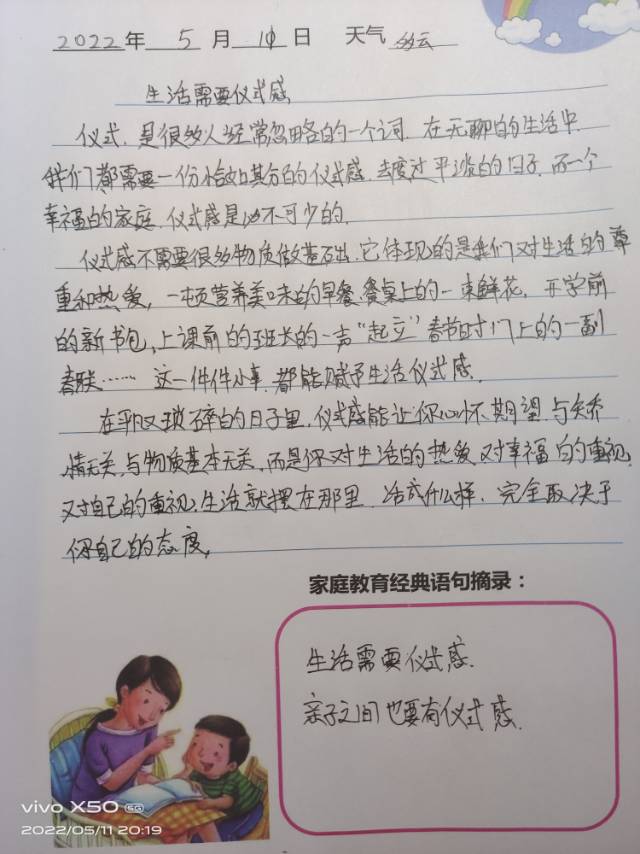 2022年 5 月 10 日 天气 多云
生活需要仪式感
仪式,是很多人经常忽略的一个词.在无聊的生活中.
我们都需要一份恰如其分的仪式感.去度过平淡的日子.而一个
幸福的家庭.仪式感是必不可少的.
仪式感不需要很多物质做基础.它体现的是我们对生活的尊
重和热爱,一顿营养美味的早餐.餐桌上的一束鲜花,开学前
的新书包,上课前的班长的一声“起立”春节时门上的一副
春联……这一件件小事.都能赋予生活仪式感.
在平凡又琐碎的日子里.仪式感能让你心怀期望.与矫
情无关,与物质基本无关.而是你对生活的热爱.对幸福的重视.
对自己的重视.生活就摆在那里.活成什么样.完全取决于
你自己的态度.
家庭教育经典语句摘录:
生活需要仪式感.
亲子之间也要有仪式感.
vivo X50 5G
2022/05/11 20:19